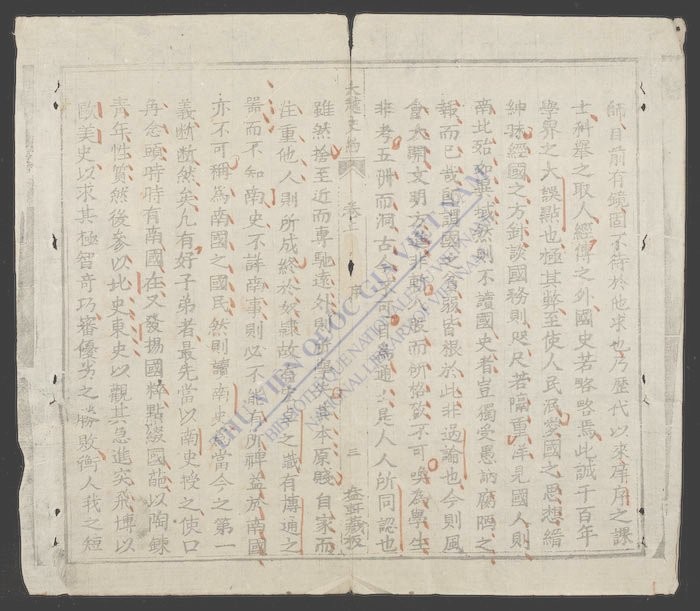 師目前有鏡固不待於他求也乃歷代以來庠序之課
士科舉之取人經傳之外國史若略略焉此誠千百年
學界之大誤點也極其弊至使人民泯愛國之思想縉
紳昧經國之方針談國務則咫尺若隔重洋見國人則
南北殆如異域然則不讀國史者豈獨受愚訥腐陋之
報而已哉即謂國之貧弱皆根於此非過論也今則風
會大開文明方進非動一股而所能致不可喚為學生
非考五洲而洞古今未可目為通儒是人人所同認也
大越史約 卷上 序 三 藏板
雖然捨至近而專馳遠外則所學無本原賤自家而
注重他人則所成終於奴隸故有奇卓之識有博通之
器而不知南史不詳南事則必不能有所裨益於南國
亦不可稱為南國之國民然則讀南史當今之第一
義斷斷然矣凡有好子弟者最先當以南史授之使口
舟念頭時時有南國在又發揚國粹點綴國葩以陶鍊
青年性質然後參以北史東史以觀其急進突飛博以
歐美史以求其極智奇巧審優劣之勝敗衡人我之短
THƯ VIỆN QUỐC GIA VIỆT NAM
BIBLIOTHÈQUE NATIONALE DU VIETNAM
NATIONAL LIBRARY OF VIETNAM